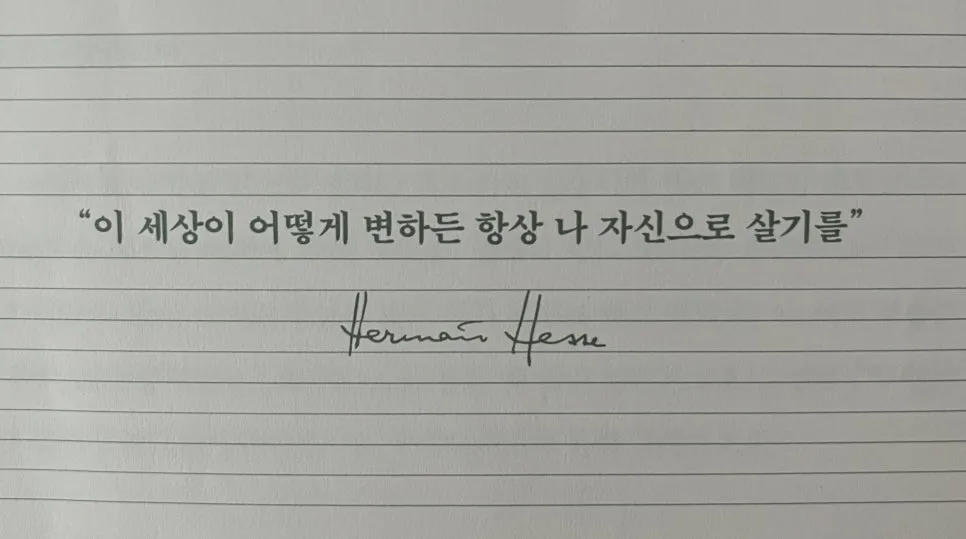 “이 세상이 어떻게 변하든 항상 나 자신으로 살기를”
Hermann Hesse